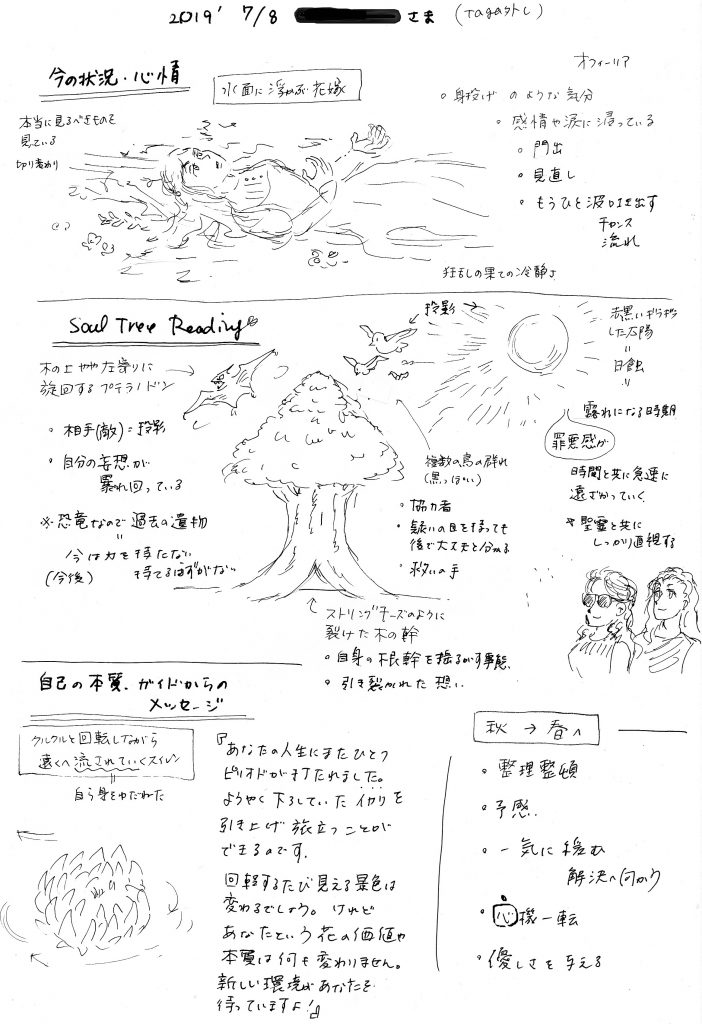 2019' 7/8 さま (Tagaタトし)
今の状況・心情
水面に浮かぶ花嫁
オフィーリア
本当に見るべきものを
見ている
切り替わり
・身投げのような気分
・感情や涙に浸っている
・門出
・見直し
・もうひと波 吐き出す
チャンス
流れ
狂乱の果ての冷静さ
Soul Tree Reading
木の上やや左寄りに
旋回するプテラノドン
・相手(敵)=投影
・自分の妄想が
暴れ回っている
※恐竜なので過去の遺物
=
今は力を持たない
(今後) 持てるはずがない
投影→
複数の鳥の群れ
(黒っぽい)
・協力者
・疑いの目を持っても
後で大丈夫と分かる
・救いの手
赤黒いギラギラ
した太陽
=
日蝕
=
露れになる時期
罪悪感が
時間と共に急速に
遠ざかっていく
※聖霊と共に
しっかり直視する
ストリングチーズのように
裂けた木の幹
・自身の根幹を揺るがす事態
・引き裂かれた想い
自己の本質、ガイドからの
メッセージ
クルクルと回転しながら
遠くへ流されていくスイレン
=
自ら身をゆだねた
『あなたの人生にまたひとつ
ピリオドが打たれました。
ようやく下ろしていたイカリを
引き上げ旅立つことが
できるのです。
回転するたび見える景色は
変わるでしょう。けれど
あなたという花の価値や
本質は何も変わりません。
新しい環境があなたを
待っていますよ!』
秋→春へ
・整理整頓
・予感
・一気に緩む
解決へ向かう
・心機一転
・優しさを与える